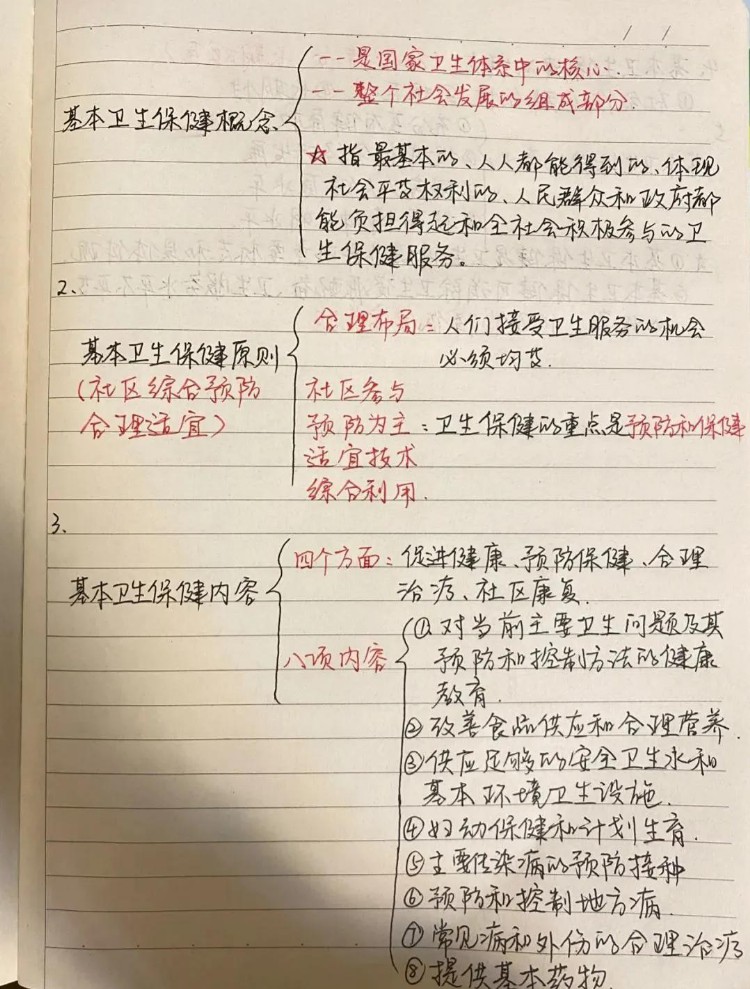 / /
-- 是国家卫生体系中的核心.
-- 整个社会发展的组成部分.
基本卫生保健概念
☆ 指最基本的、人人都能得到的、体现
社会平等权利的、人民群众和政府都
能负担得起和全社会积极参与的卫
生保健服务。
2.
合理布局：人们接受卫生服务的机会
必须均等.
基本卫生保健原则
(社区综合预防
合理适宜)
社区参与
预防为主：卫生保健的重点是预防和保健
适宜技术
综合利用.
3.
四个方面：促进健康、预防保健、合理
治疗、社区康复.
基本卫生保健内容
八项内容
①对当前主要卫生问题及其
预防和控制方法的健康
教育.
②改善食品供应和合理营养.
③供应足够的安全卫生水和
基本环境卫生设施.
④妇幼保健和计划生育.
⑤主要传染病的预防接种
⑥预防和控制地方病.
⑦常见病和外伤的合理治疗
⑧提供基本药物.